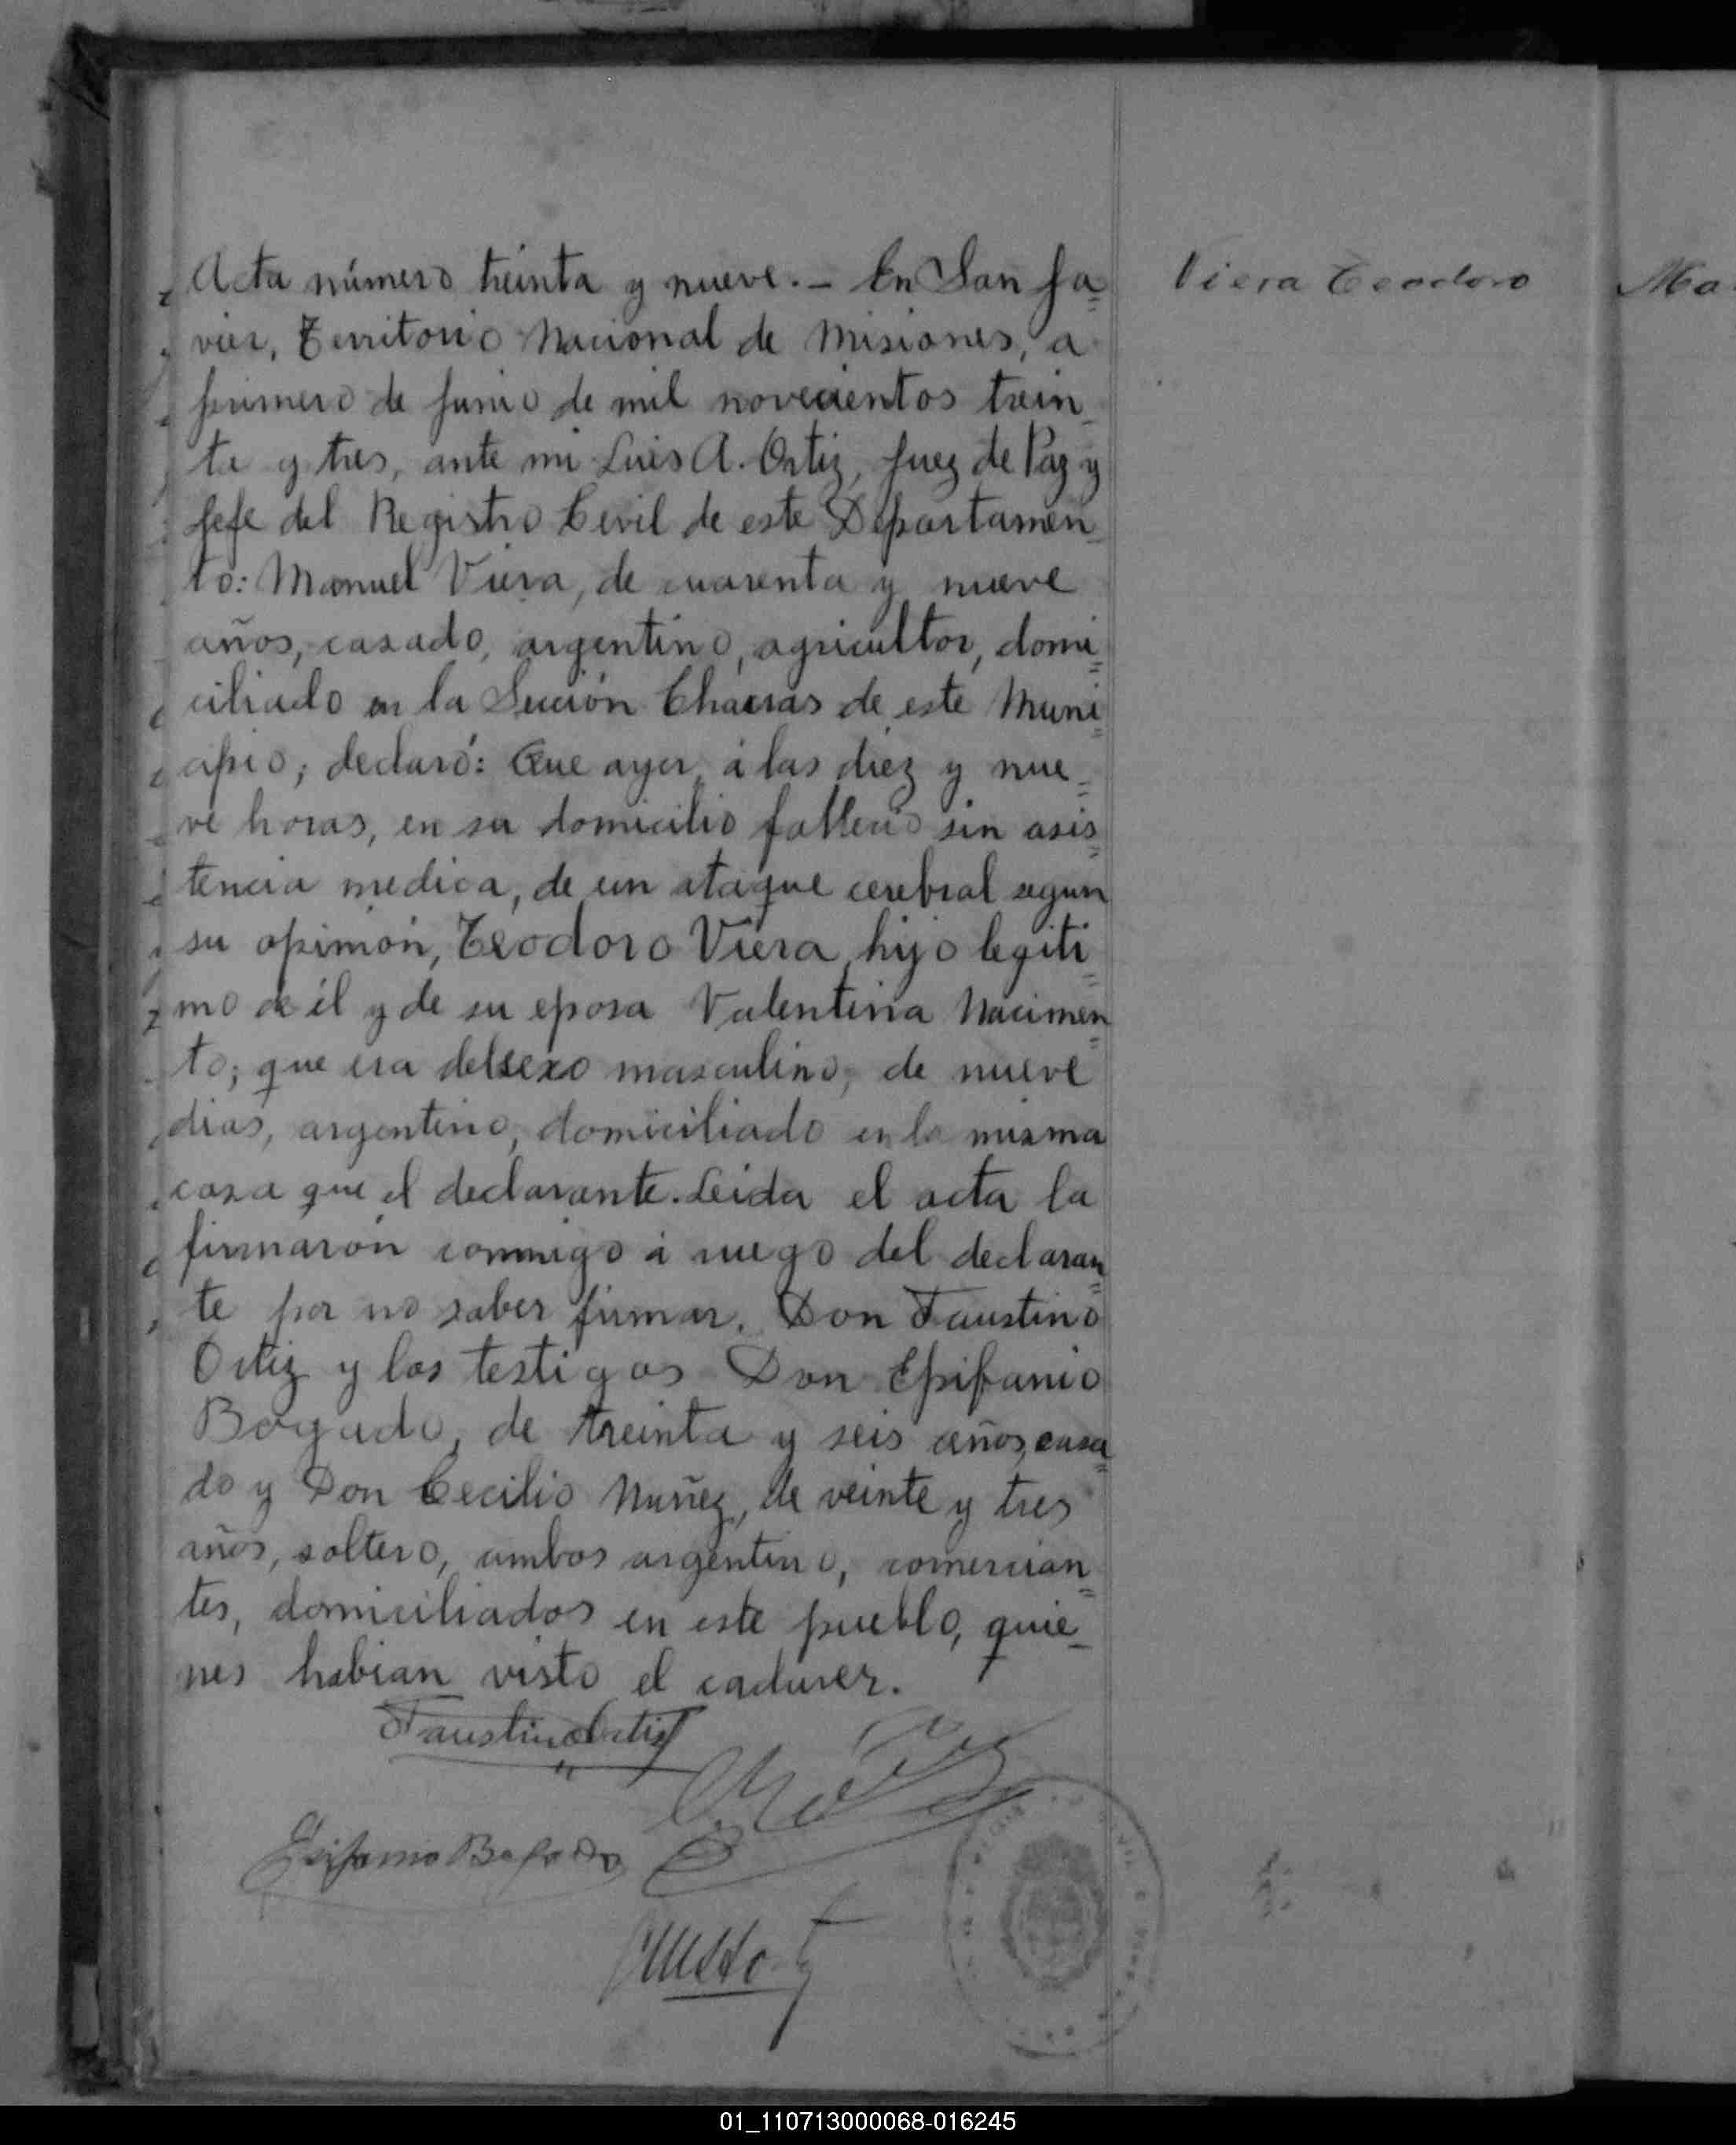 Acta número treinta y nueve.- En San Ja=
vier, Territorio Nacional de Misiones, a
primero de Junio de mil novecientos trein_
ta y tres, ante mi Luis A. Ortiz, Juez de Paz y
Jefe del Registro Civil de este Departamen_
to: Manuel Viera, de cuarenta y nueve
años, casado, argentino, agricultor, domi=
ciliado en la Sección Chacras de este Muni=
cipio; declaró: Que ayer á las diez y nue=
ve horas, en su domicilio falleció sin asis=
tencia medica, de un ataque cerebral segun
su opinión, Teodoro Viera, hijo legiti=
mo de él y de su eposa Valentina Nacimen=
to; que era del sexo masculino, de nueve
dias, argentino, domiciliado en la misma
casa que el declarante. Leida el acta la
firmarón conmigo á ruego del declaran=
te por no saber firmar, Don Faustino
Ortiz y los testigos Don Epifanio
Bogado, de treinta y seis años, casa=
do y Don Cecilio Nuñez, de veinte y tres
años, soltero, ambos argentino, comercian=
tes, domiciliados en este pueblo, quie_
nes habian visto el cadaver.
Faustino Ortiz
Epifanio Bogado
Viera Teodoro
Ma
01_110713000068-016245